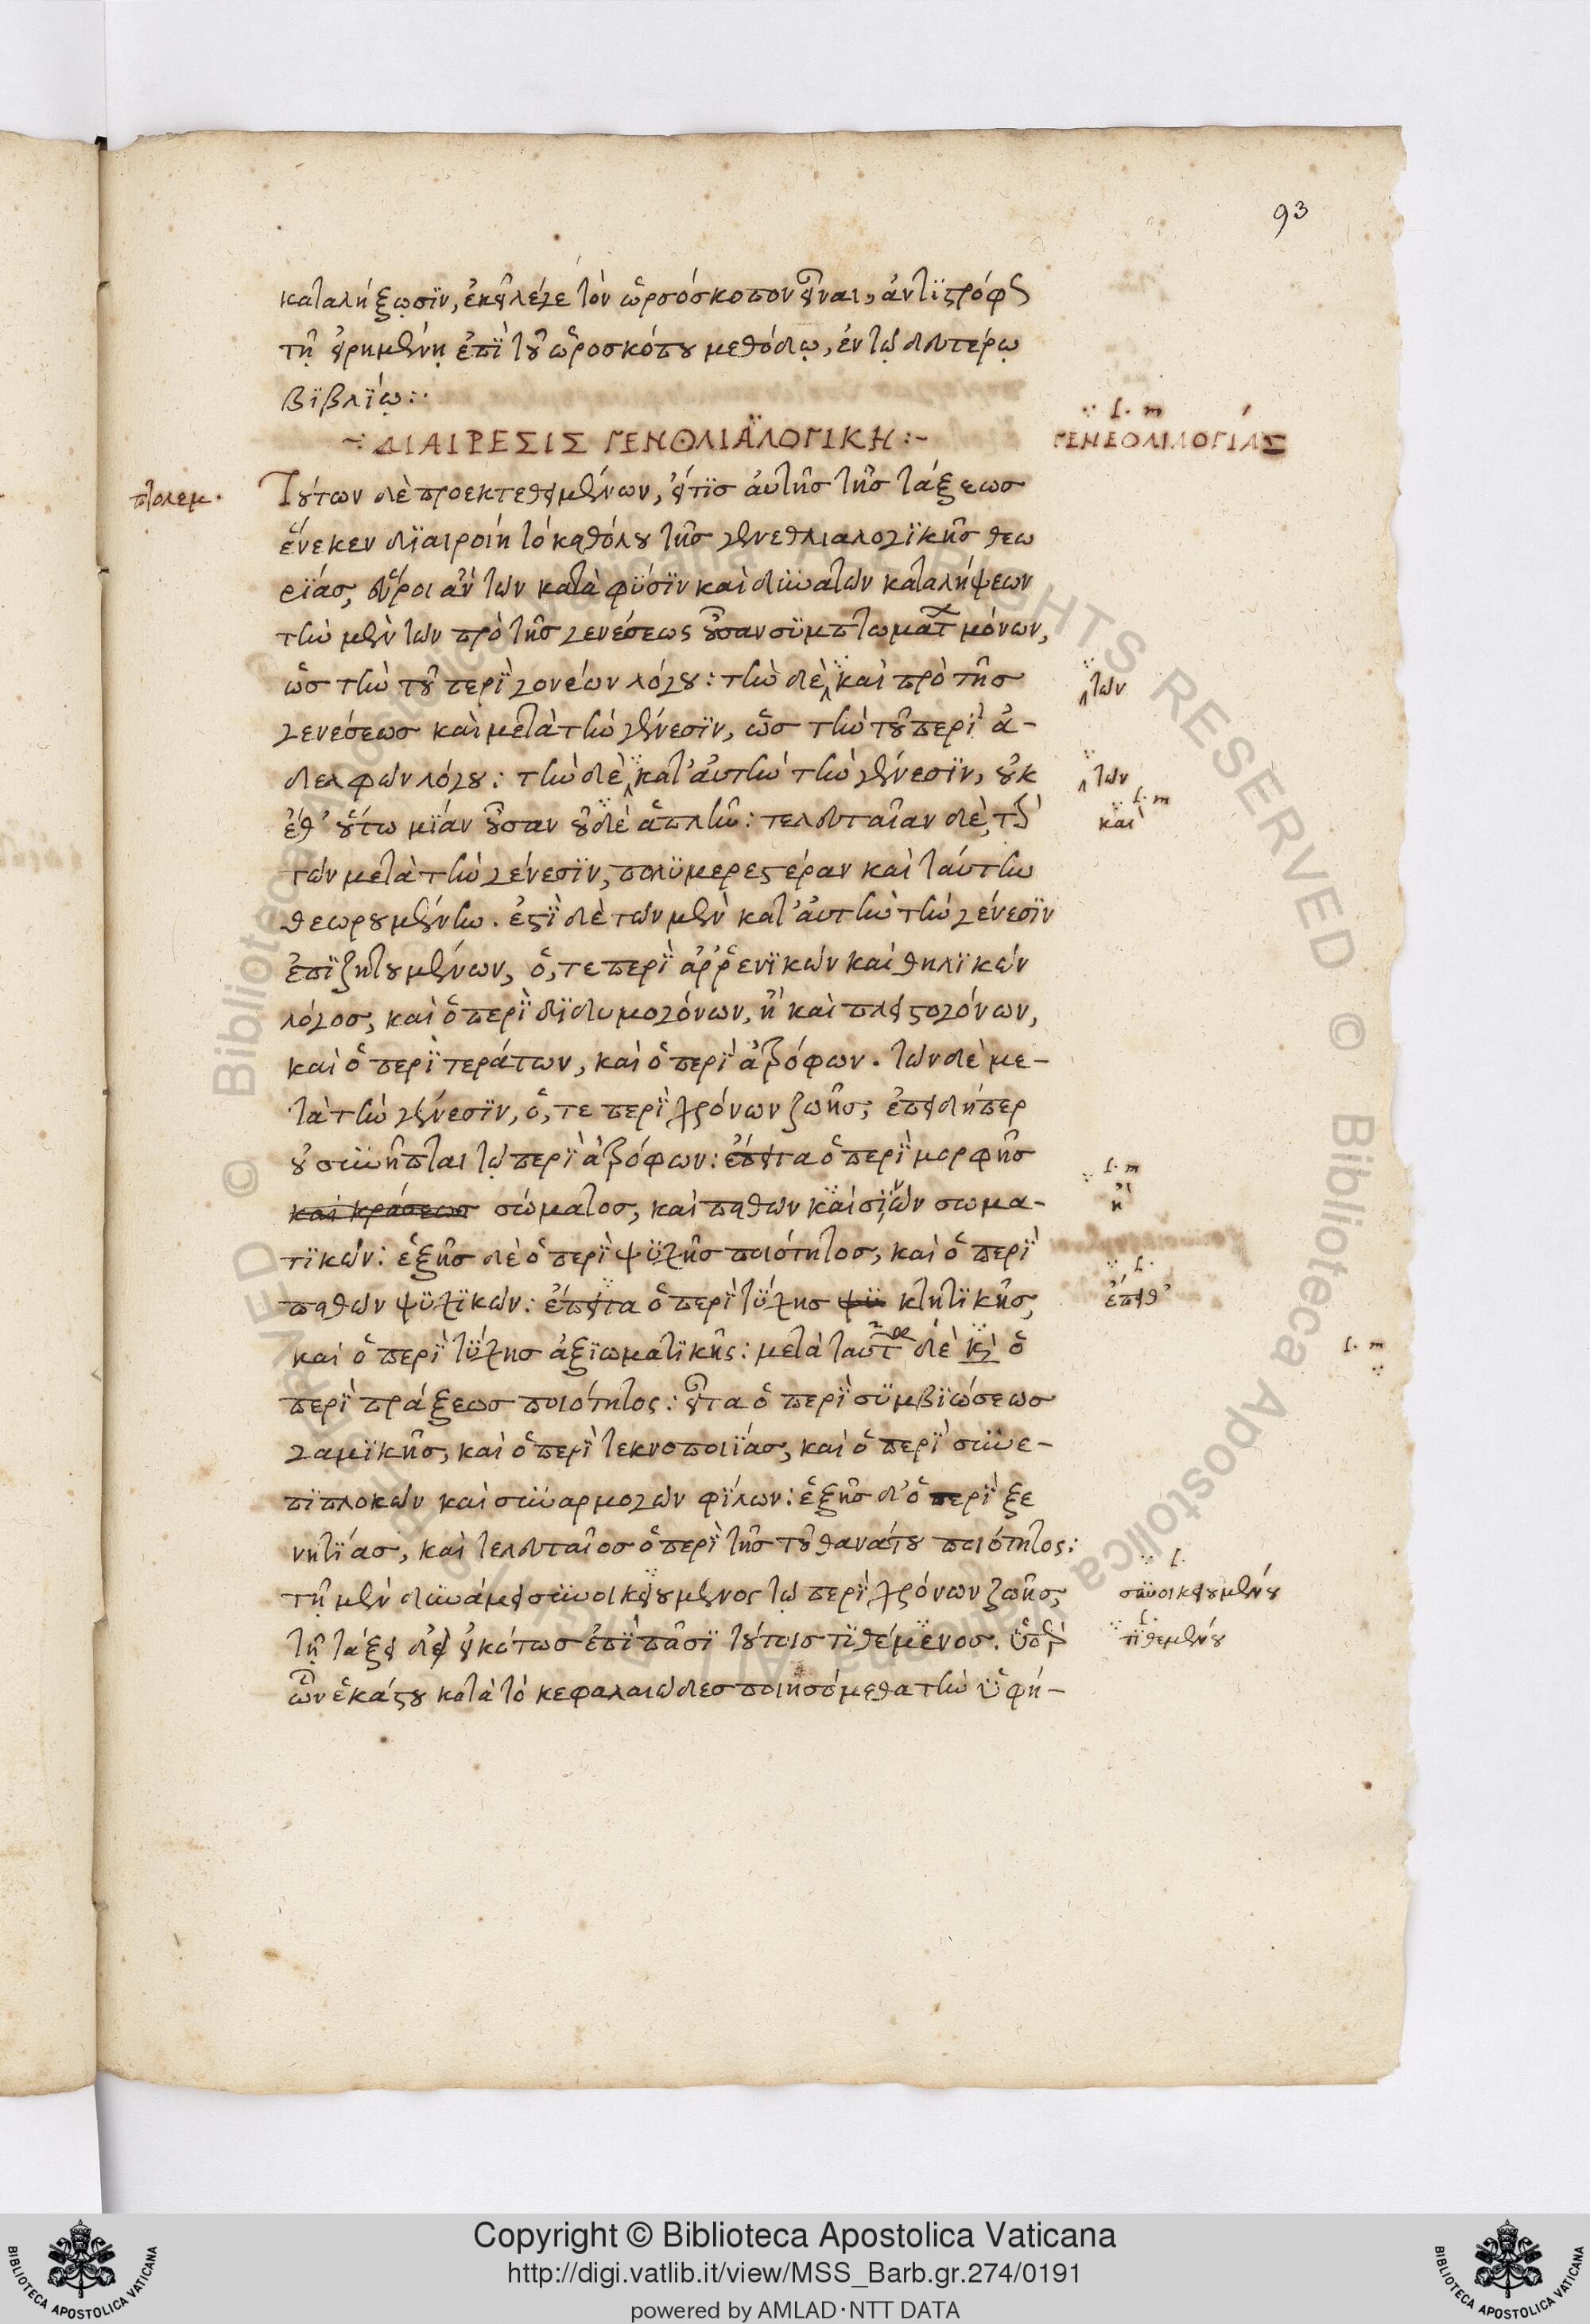 93
καταλήξωσϊν, ἐκεῖ λέγε τὸν ὡρσόσκοπον εἶναι, ἀντϊστρόφως
τῇ εἰρημένῃ ἐπϊ τοῦ ὡροσκόπου μεθόδῳ, ἐν τῷ δευτέρῳ
βϊβλϊῳ:·
~: ΔΙΑΙΡΕΣΙΣ ΓΕΝΘΛΙΑΛΟΓΙΚΗ :~
ΓΕΝΕΘΛΙΛΟΓΙΑΣ
πτολεμ.
Τούτων δὲ προεκτεθειμένων, εἴτϊσ αὐτῆσ τῆσ τάξεωσ
ἕνεκεν δϊαιροίη τὸ καθόλου τῆσ γενεθλιαλογϊκῆσ θεω
ρϊάσ, εὕροι ἂν τῶν κατὰ φύσϊν καὶ δυνατῶν καταλήψεων
τὴν μὲν τῶν πρὸ τῆσ γενέσεως οὖσαν συμπτωμάτ μόνων,
ὡσ τὴν τοῦ περὶ γονέων λόγου: τὴν δὲ καὶ πρὸ τῆσ
τῶν
γενέσεωσ καὶ μετὰ τὴν γένεσϊν, ὡσ τὴν τοῦ περὶ ἀ-
δελφῶν λόγου: τὴν δὲ κατ' αὐτὴν τὴν γένεσϊν, οὐκ
τῶν
ἐθ' οὕτω μϊαν οὖσαν οὐδὲ ἁπλῆν: τελευταῖαν δὲ, τὴν
καὶ
τῶν μετὰ τὴν γένεσϊν, πολυμερεστέραν καὶ ταύτην
θεωρουμένην. ἐστϊ δὲ τῶν μὲν κατ' αὐτὴν τὴν γένεσϊν
ἐπϊζητουμένων, ὅ, τε περὶ ἀῤῥενϊκῶν καὶ θηλϊκῶν
λόγοσ, καὶ ὁ περὶ δϊδυμογόνων, ἢ καὶ πλειστογόνων,
καὶ ὁ περὶ τεράτων, καὶ ὁ περὶ ἀτρόφων. τῶν δὲ με-
τὰ τὴν γένεσϊν, ὅ, τε περὶ χρόνων ζωῆσ, ἐπειδήπερ
οὐ συνῆπται τῷ περὶ ἀτρόφων: ἔπειτα ὁ περὶ μορφῆσ
καὶ κράσεωσ σώματοσ, καὶ παθῶν καὶ σινῶν σωμα-
ἢ
τϊκῶν: ἑξῆσ δὲ ὁ περὶ ψυχῆσ ποιότητοσ, καὶ ὁ περὶ
παθῶν ψυχϊκῶν: ἔπειτα ὁ περὶ τύχησ ψυ κτητϊκῆσ,
ἔπειθ'
καὶ ὁ περὶ τύχησ ἀξϊωματϊκῆς: μετὰ ταῦτ δὲ κὶ ὁ
περὶ πράξεωσ ποιότητος: εἶτα ὁ περὶ συμβϊώσεωσ
γαμϊκῆσ, καὶ ὁ περὶ τεκνοποιϊάσ, καὶ ὁ περὶ συνε-
πϊπλοκῶν καὶ συναρμογῶν φϊλων: ἑξῆσ δ' ὁ περὶ ξε
νητϊασ, καὶ τελευταῖοσ ὁ περὶ τῆσ τοῦ θανάτου ποιότητος:
τῇ μὲν δυνάμει συνοικειουμένος τῷ περὶ χρόνων ζωῆσ,
συνοικειουμένου
τῇ τάξει δὲ εἰκότωσ ἐπϊ πᾶσϊ τούτοισ τϊθέμενοσ. ὑπὲρ
τϊθεμένου
ὧν ἑκάστου κατὰ τὸ κεφαλαιῶδεσ ποιησόμεθα τὴν ὑφή-
BIBLIOTECA APOSTOLICA VATICANA
Copyright © Biblioteca Apostolica Vaticana
http://digi.vatlib.it/view/MSS_Barb.gr.274/0191
powered by AMLAD·NTT DATA
BIBLIOTECA APOSTOLICA VATICANA